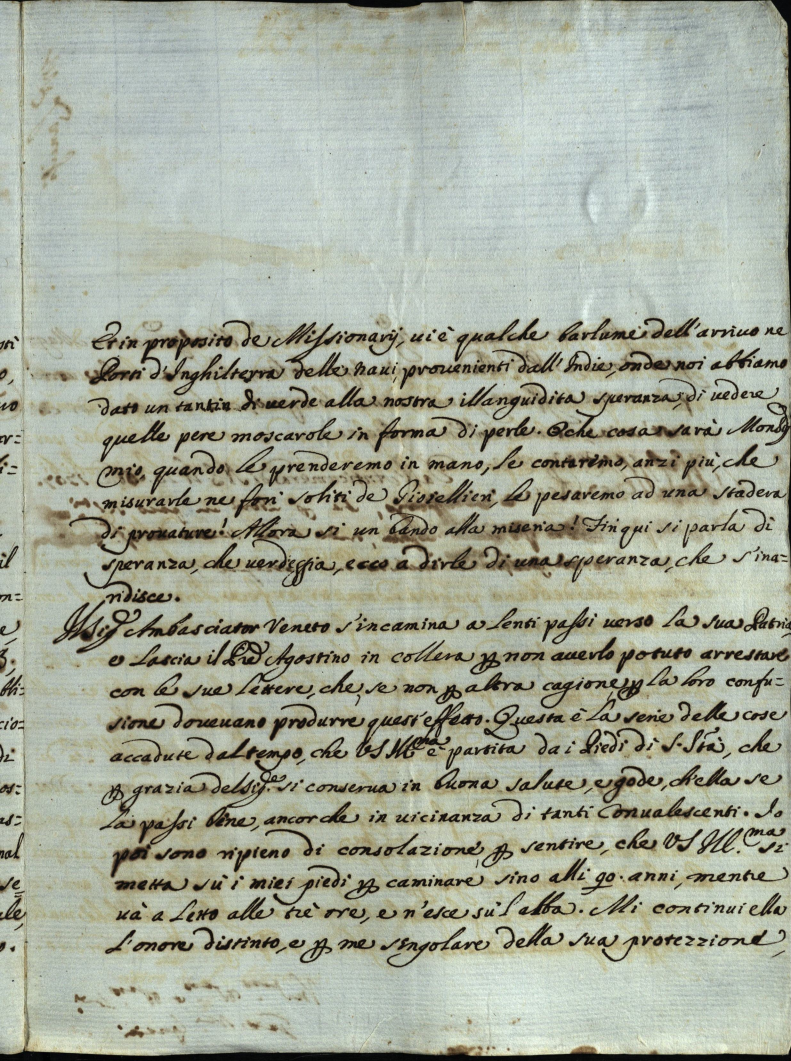 Et in proposito de Missionarij, ui è qualche barlume dell'arriuo ne
Porti d'Inghilterra delle naui, prouenienti dall'Indie, onde noi abbiamo
dato un tantin di uerde alla nostra illanguidita speranza, di uedere
quelle pere moscarole in forma di perle. O che cosa sarà Mons.r
mio, quando le prenderemo in mano, le contaremo, anzi più, che
misurarle ne fori soliti de Gioiellieri, le pesaremo ad una stadera
di prouature! Allora si un bando alla miseria! Fin qui si parla di
speranza, che uerdeggia, ecco a dirle di una speranza, che s'ina=
ridisce.
Il Sig.r Ambasciator Veneto s'incamina a lenti passi uerso la sua Patria
e lascia il Agostino in collera p non auerlo potuto arrestare
con le sue lettere, che, se non p altra cagione, p la loro confu=
sione doueuano produrre quest'effetto. Questa è la serie delle cose
accadute dal tempo, che VS Ill.ma è partita da i Piedi di S. Stà, che
p grazia del Sig.re si conserua in buona salute, e gode, ch'ella se
la passi bene, ancorche in uicinanza di tanti Conualescenti. Io
poi sono ripieno di consolazione p sentire, che VS Ill.ma si
metta sù i miei piedi p caminare sino alli 90. anni, mentre
uà a letto alle trè ore, e n'esce sù l'alba. Mi continui ella
l'onore distinto, e p me singolare della sua protezzione,